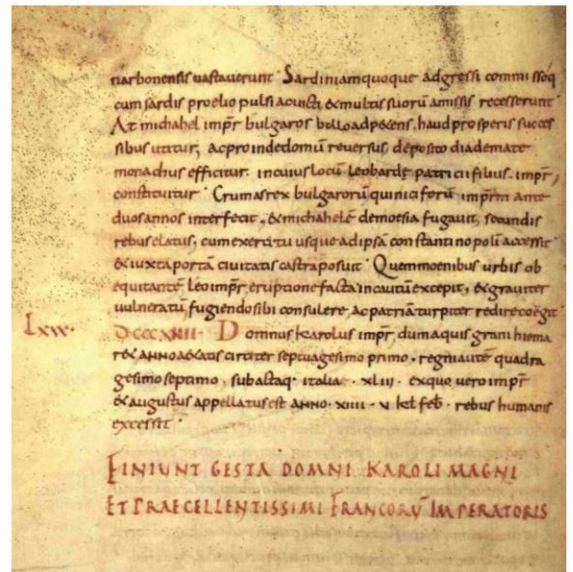 narbonensis uastauerunt · Sardiniam quoque adgressi commissoq;
cum sardis proelio pulsi ac uicti & multis suorū amissis recesserunt ·
At michahel impr̄ bulgaros bello adp&ens, haud prosperis succes
sibus utitur, ac proinde domū reuersus deposito diademate
monachus efficitur. in cuius locū leo bardę patricii filius. impr̄,
constituitur · Crumas rex bulgarorū qui niciforū impr̄m ante
duos annos interfecit, & michahelē de moesia fugauit, secundis
rebus elatus, cum exercitu usque ad ipsā constantinopolī accessit ·
& iuxta portā ciuitatis castra posuit · Quem moenibus urbis ob
equitantē leo impr̄ eruptione facta incautū excepit, & grauiter
uulneratū fugiendo sibi consulere, ac patriā turpiter redire coegit ·
Lxv·
DCCCXIIII · Domnus Karolus impr̄ dum aquisgrani hiema
r& anno ætatis circiter septuagesimo primo · regni autē quadra
gesimo septimo, subactaq · italia · xliii · ex quo uero impr̄
& augustus appellatus est anno · xiiii · v kl feb̄ · rebus humanis
excessit ·
FINIUNT GESTA DOMNI KAROLI MAGNI
ET PRAECELLENTISSIMI FRANCORŪ IMPERATORIS